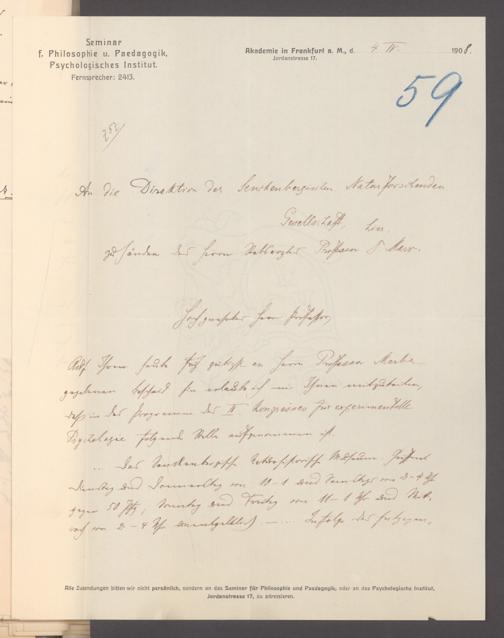 Seminar
f. Philosophie u. Paedagogik,
Psychologisches Institut.
Fernsprecher: 2413.
Akademie in Frankfurt a. M., d. 4 IV. 1908.
Jordanstrasse 17.
59
An die Direktion der Senckenbergischen Naturforschenden
Gesellschaft, hier.
zu Händen des Herrn Professor
Hochgeehrter Herr Professor,
Auf Ihren heute früh Herrn Professor Marbe
gegebenen Bescheid hin erlaube ich mir Ihnen mitzuteilen,
daß in das Programm des III Kongresses für experimentelle
Psychologie folgende Stelle aufgenommen ist.
... Das Senckenbergische Museum
Dienstag und Donnerstag von 11-1 und von 2-4 Uhr
gegen 50 Pfg, Sonntag und Freitag von 11-1 Uhr und
von 2-4 Uhr unentgeltlich
Alle Zusendungen bitten wir nicht persönlich, sondern an das Seminar für Philosophie und Paedagogik, oder an das Psychologische Institut,
Jordanstrasse 17, zu adressieren.